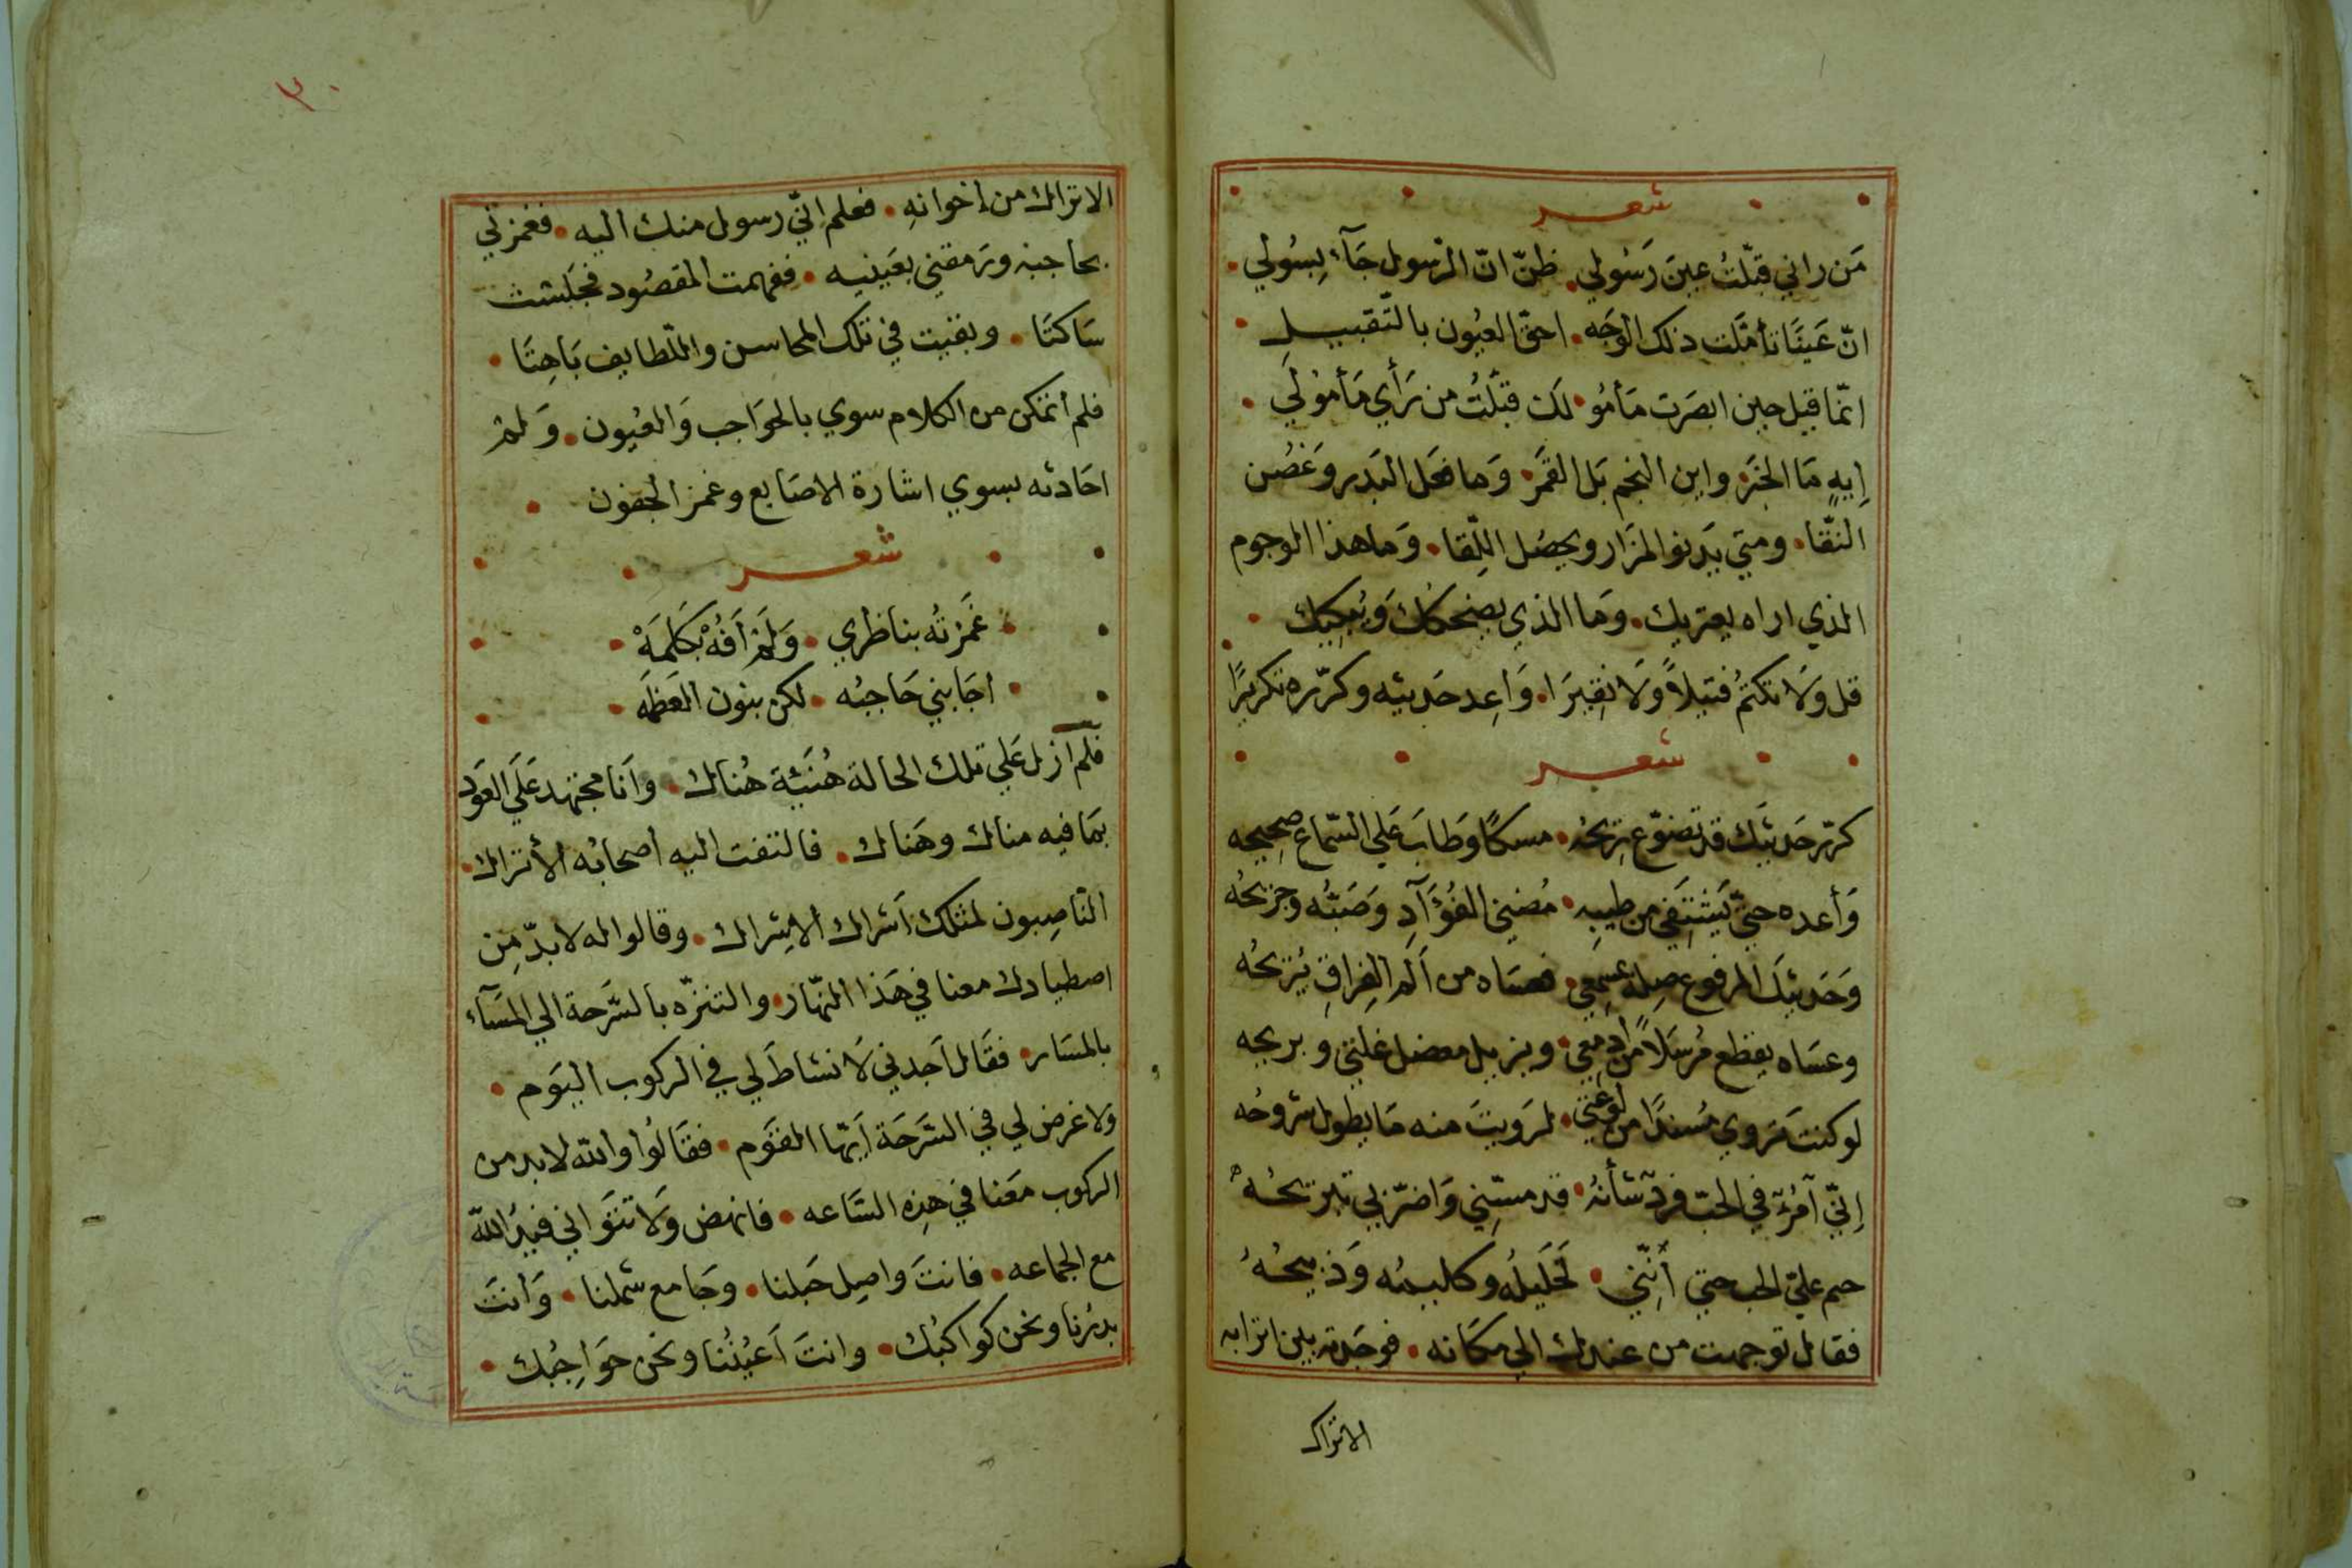 شعر
مَن راني قبّلتُ عينَ رَسُولي • ظنّ انّ الرّسول جَآء بِسُولي •
انّ عَينًا تأمّلت ذلك الوَجه • احقّ العيُون بالتّقبيلِ •
انّما قيل حين ابصَرت مَأمُو • لَك قبّلتُ من رَأي مَأمُولي •
إيهٍ مَا الخبَر • واين النجم بَل القَمَر • وَما فعَل البَدر وغصُن
النّقا • ومتي يَدنو المزَار ويحصُل اللِّقا • وَما هذا الوجوم
الذي اراه يعتريك • وَما الذي يضحكك وَيُبكيك •
قل وَلَا تكتمُ فتيلًا وَلَا نقِيرَا • وَاعِد حَديثه وكرّره تكريرًا
شعر
كرّر حَديثك قد تضوّع ريحُهُ • مسكًا وَطابَ عَلي السّماع صحيحه
وَأعده حتّي يَشتَفي من طيبِه • مُضني الفُؤَآدِ وَصَبُّه وجَريحُهُ
وَحَديثكَ المرفوع صِله بمسمعي • فعسَاه من اَلَم الفِراقِ يُريحُه
وعسَاه يقطع مُرسَلًا من ادمعي • ويزيل معضل غلتي ويريحه
لو كنت مَروي مُسندًا من لوعتي • لرَويتَ منه مَا يطول شروحُه
إنّي آمرُؤٌ في الحبّ فردٌ شأنُهُ • قد مسّني وَاضرّ بي تبريحُهُ
حم عليّ الحب حتي أنّني • لَخَليلُه وكليمُه وَذبيحُهُ
فقال توجهت من عندك الي مكَانه • فوجَدته بين اترابه
الاتراك
٣٠
الاتراك من أخوانهِ • فعلم انّي رسول منك اليه • فغمزني
بحاجبه ورَمقني بعَينيه • ففهمت المقصُود فجَلَست
سَاكتَا • وبقيت في تلك المحاسن واللّطايف بَاهِتَا •
فلم أتمكن من الكلام سوي بالحوَاجب وَالعُيون • وَلم
احَادثه بسوي اشارة الاصَابع وغمز الجفون •
شعر
غَمَزتُه بناظري • وَلَم اَفُهْ بكَلمَهْ •
اجَابني حَاجبُه • لكن بنون العَظمَه •
فلَم آزل عَلي تلك الحالة هُنَيئة هُناك • وأنا مجتهد عَلَي العَود
بمَا فيه مناك وهَناك • فالتفت اليه أصحابُه الأتراك •
النّاصِبون لمثلك اَشراك الاشراك • وقالوا له لا بدّ مِن
اصطيادك معنا في هَذا النّهار • والتنزّه بالسَّرحة الي المسَآء
بالمسَار • فقَال اَجدني لَا نشاطَ لي في الركوب اليَوم •
ولا غرض لي في السَّرحَة اَيّها القَوم • فقَالُوا والله لا بد من
الركوب معَنا في هذِه السَّاعه • فانهض وَلَا تتَوَاني فيدُ اللّه
مع الجماعه • فانتَ واصِل حَبلنا • وجَامع شملنا • وَأنتَ
بدرُنا ونحن كواكبُك • وانتَ اَعيُنُنا ونحن حوَاجِبُك •